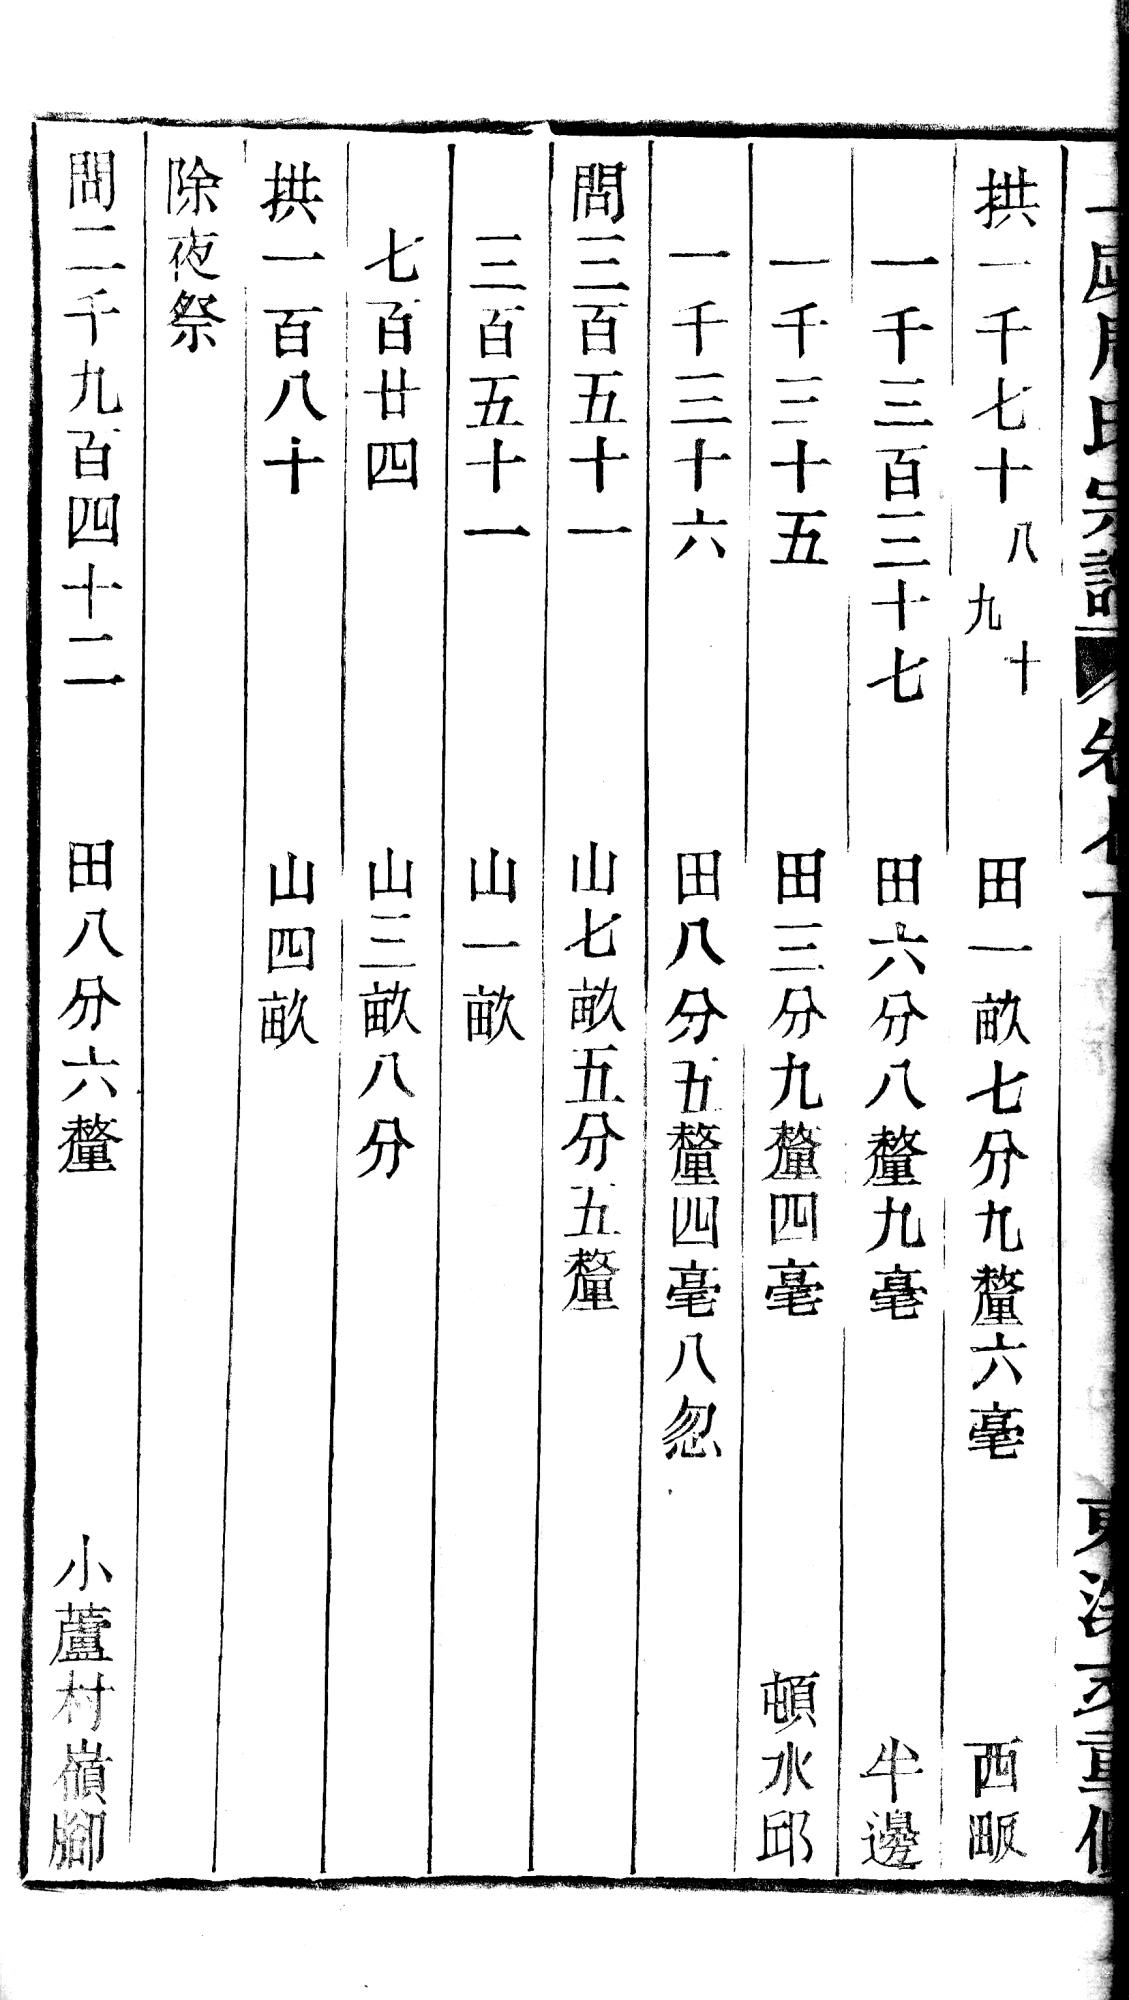 拱一千七十八九十 田一畝七分九釐六毫 西畈
一千三百三十七 田六分八釐九毫 半邊
一千三十五 田三分九釐四毫 頓水邱
一千三十六 田八分五釐四毫八忽
問三百五十一 山七畝五分五釐
三百五十一 山一畝
七百廿四 山三畝八分
拱一百八十 山四畝
除夜祭
問二千九百四十二 田八分六釐 小蘆村嶺腳